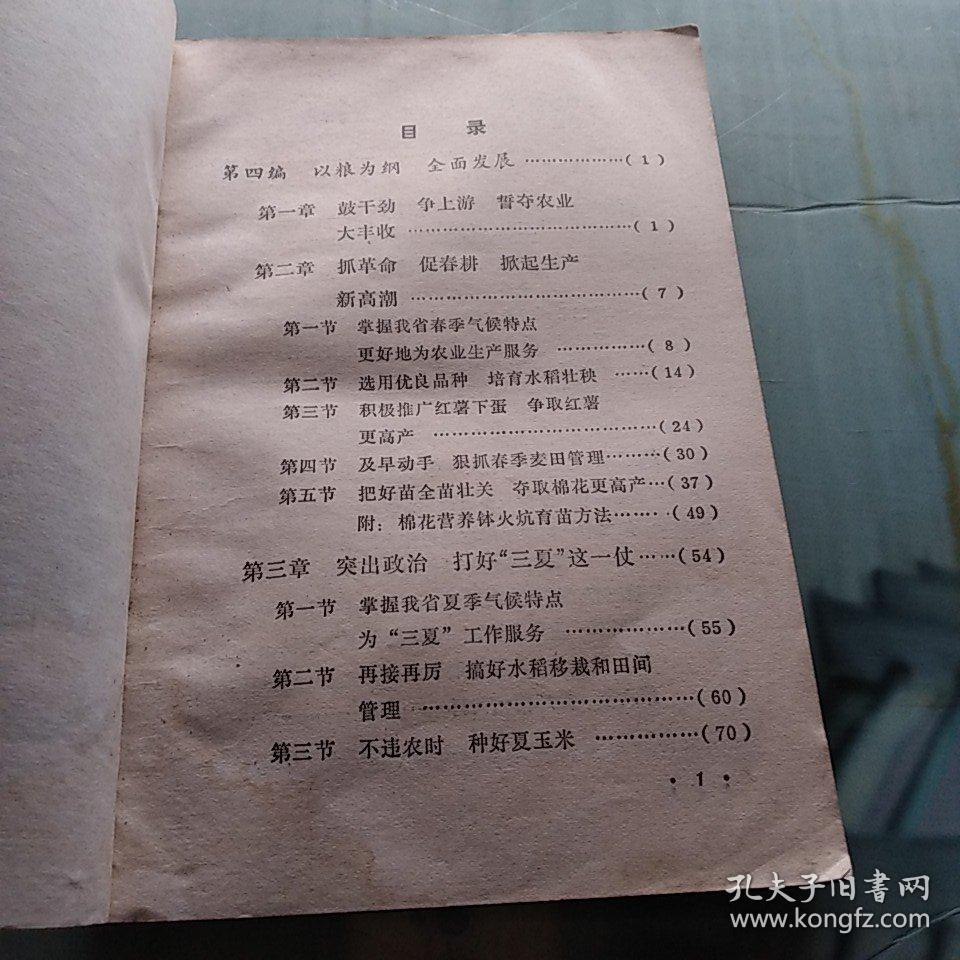 目 录
第四编 以粮为纲 全面发展 ………………( 1 )
第一章 鼓干劲 争上游 誓夺农业
大丰收 …………………………………( 1 )
第二章 抓革命 促春耕 掀起生产
新高潮 …………………………………( 7 )
第一节 掌握我省春季气候特点
更好地为农业生产服务 ……………( 8 )
第二节 选用优良品种 培育水稻壮秧 ……(14)
第三节 积极推广红薯下蛋 争取红薯
更高产 …………………………………(24)
第四节 及早动手 狠抓春季麦田管理………(30)
第五节 把好苗全苗壮关 夺取棉花更高产…(37)
附：棉花营养钵火炕育苗方法………(49)
第三章 突出政治 打好“三夏”这一仗……(54)
第一节 掌握我省夏季气候特点
为“三夏”工作服务 ………………(55)
第二节 再接再厉 搞好水稻移栽和田间
管理 ……………………………………(60)
第三节 不违农时 种好夏玉米 ……………(70)
• 1 •
孔夫子旧书网
www.kongfz.com